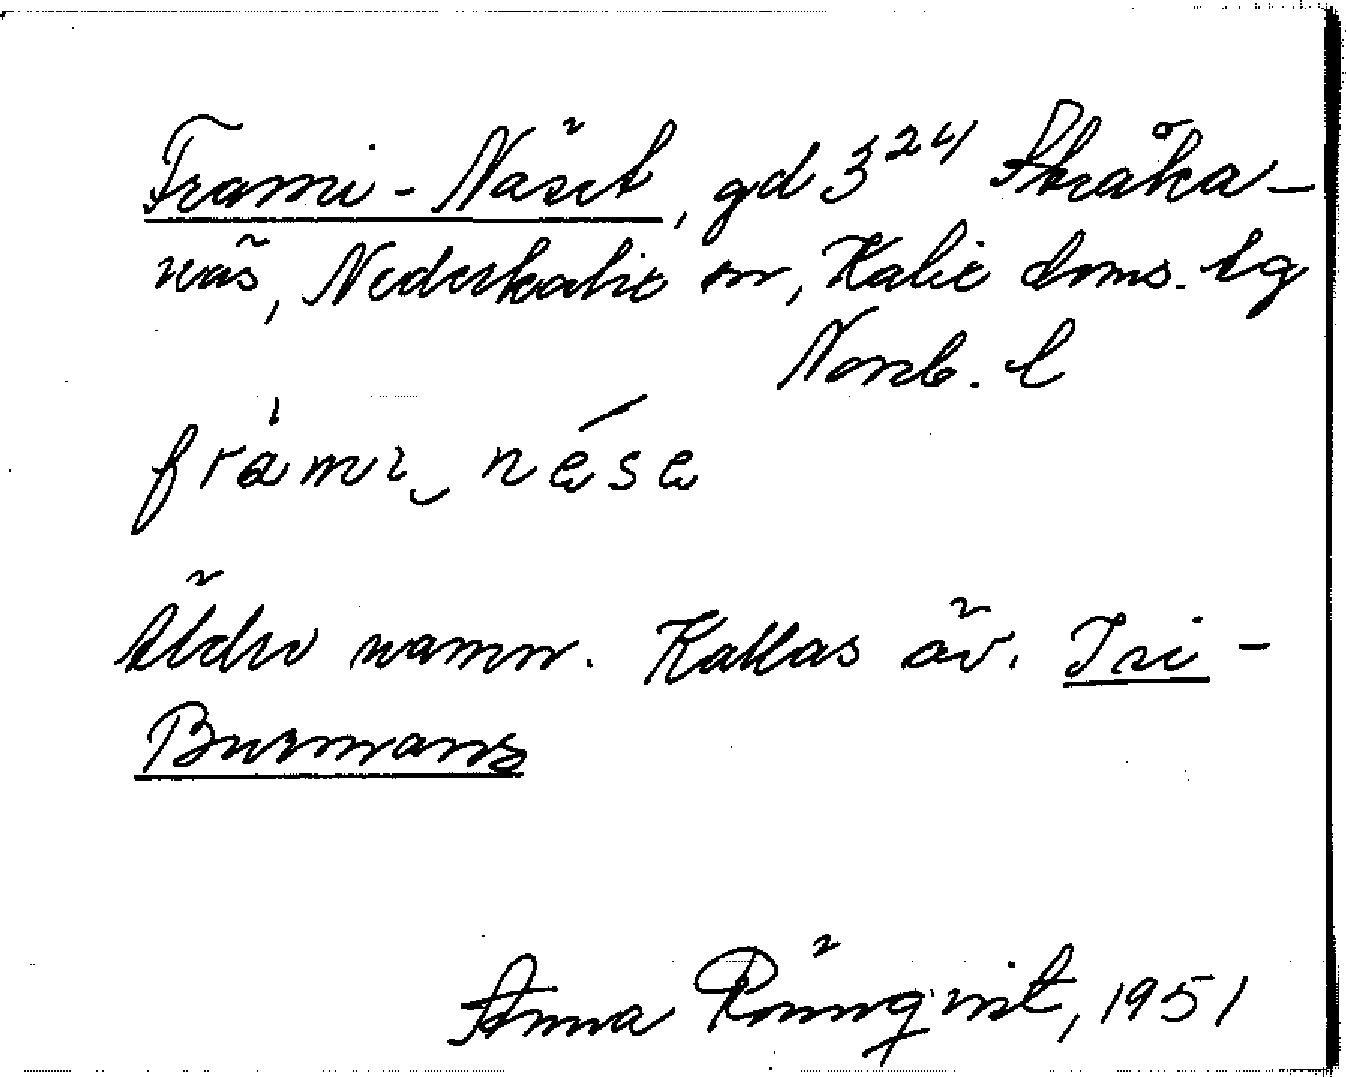 Frami-Näset, gd 3²⁴ Stråka-
näs, Nederkalix sn, Kalix doms. tg
Norrb. l
Äldre namn. Kallas äv. Isi-
Burmans
Anna Rönnqvist, 1951